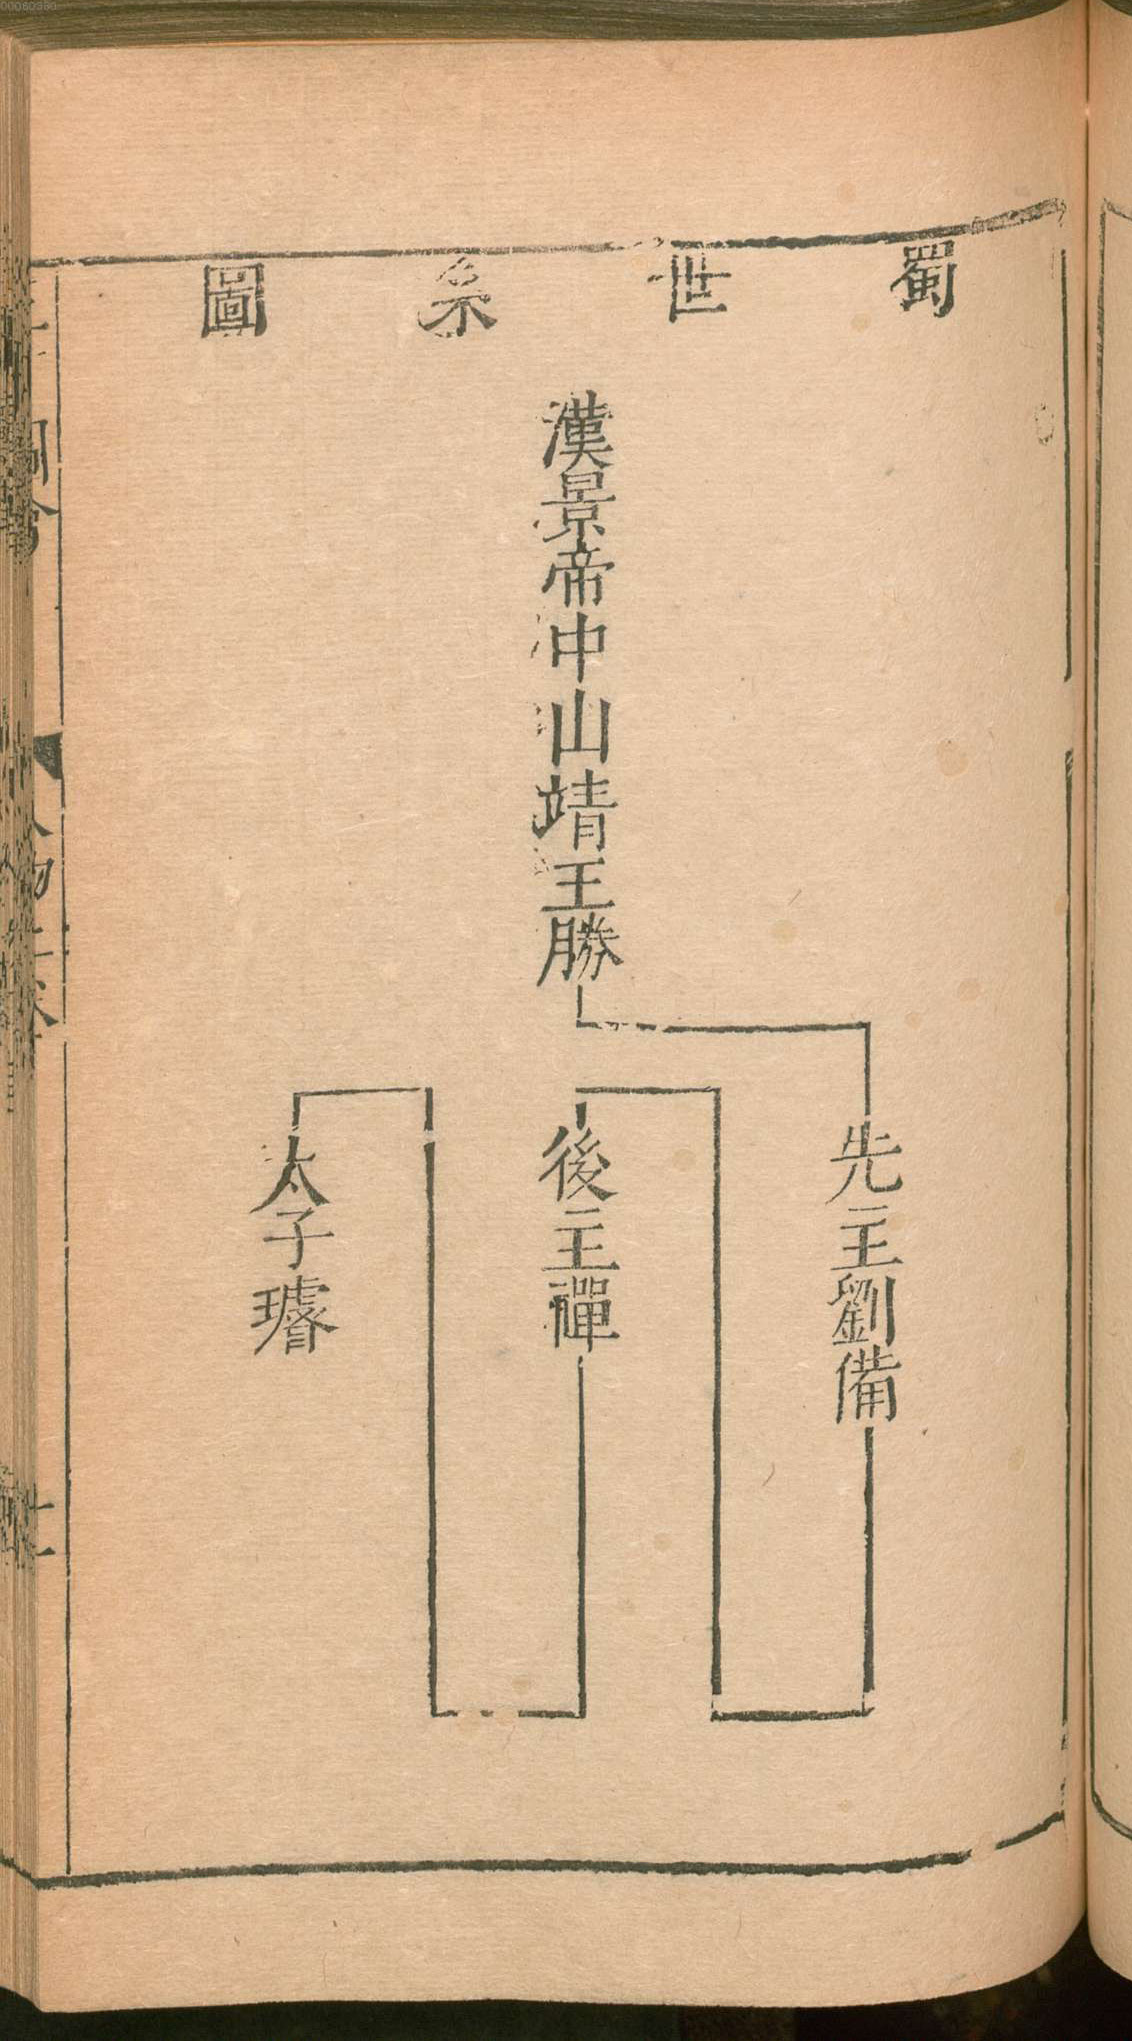 蜀世系圖
漢景帝中山靖王勝
先主劉備
後主禪
太子璿
00060380